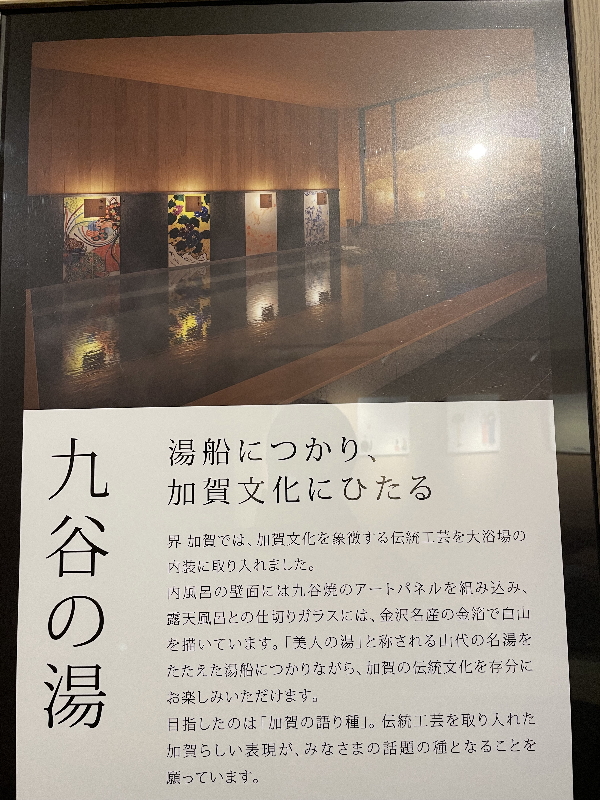 九谷の湯
湯船につかり、
加賀文化にひたる
界 加賀では、加賀文化を象徴する伝統工芸を大浴場の
内装に取り入れました。
内風呂の壁面には九谷焼のアートパネルを組み込み、
露天風呂との仕切りガラスには、金沢名産の金箔で白山
を描いています。「美人の湯」と称される山代の名湯を
たたえた湯船につかりながら、加賀の伝統文化を存分に
お楽しみいただけます。
目指したのは「加賀の語り種」。伝統工芸を取り入れた
加賀らしい表現が、みなさまの話題の種となることを
願っています。